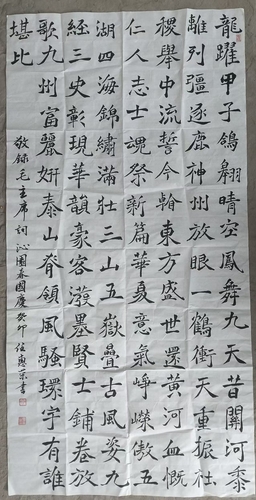 龍躍甲子鴿翱晴空鳳舞九天昔關河黍
離列疆逐鹿神州放眼一鶴衝天重振社
稷舉中流誓今朝東方盛世還黃河血慨
仁人志士魂祭新篇華夏意氣崢嶸傲五
湖四海錦繡滿壯三山五嶽疊古風姿九
經三史彰現華韻豪客潑墨賢士鋪卷放
歌九州富麗妍泰山脊領風騷環宇有誰
堪比
敬錄毛主席詞沁園春國慶癸卯書